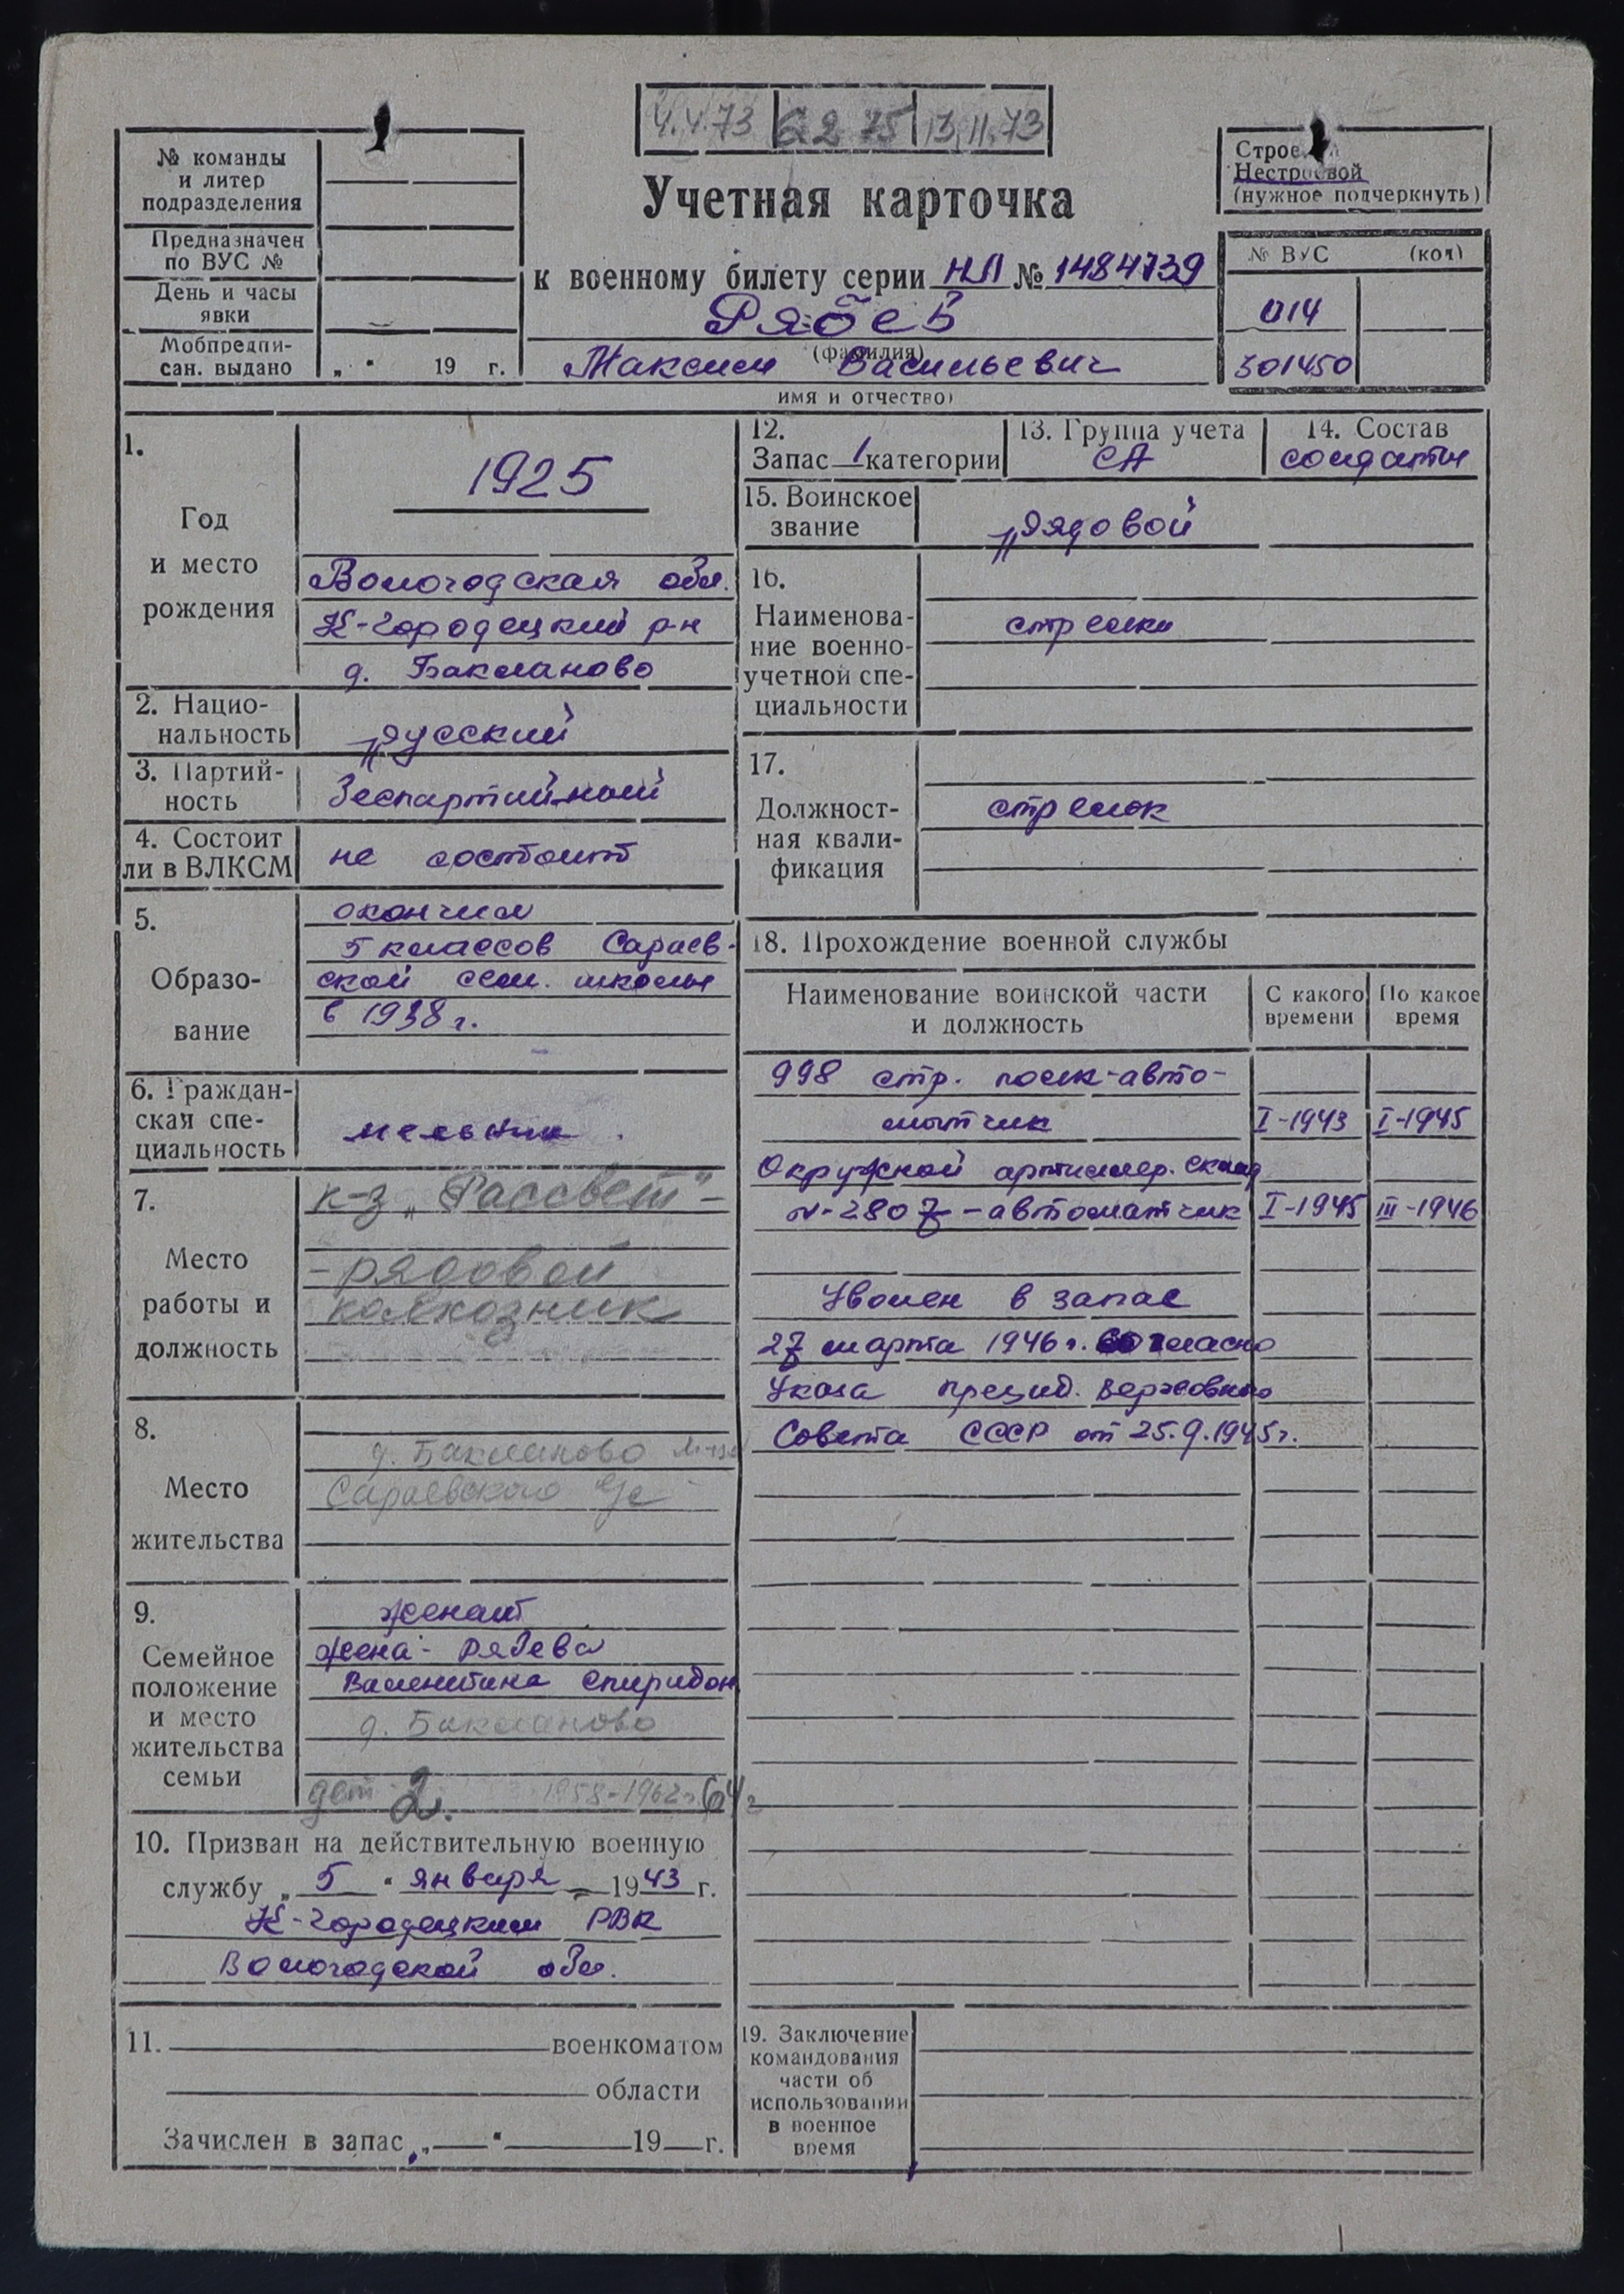 4.4.73 | 6 2 75 | 13.11.73
№ команды
и литер
подразделения
Предназначен
по ВУС №
День и часы
явки
Мобпредпи-
сан. выдано „ “ 19 г.
Учетная карточка
к военному билету серии НЛ № 1484739
Рябев
(фамилия)
Максим Васильевич
имя и отчество)
Нестроевой
(нужное подчеркнуть)
№ ВУС (код)
014
301450
1.
Год
и место
рождения
1925
Вологодская обл.
К-Городецкий р-н
д. Бакланово
2. Нацио-
нальность
русский
3. Партий-
ность
беспартийный
4. Состоит
ли в ВЛКСМ
не состоит
5.
Образо-
вание
окончил
5 классов Сараев-
ской сем. школы
в 1938 г.
6. Граждан-
ская спе-
циальность
мельник
7.
Место
работы и
должность
к-з „Рассвет" -
- рядовой
колхозник
8.
Место
жительства
д. Бакланово
Сараевского с/с
9.
Семейное
положение
и место
жительства
семьи
женат
жена - Рябева
Валентина Спиридон
д. Бакланово
дет 2. 1958-1962г. 64г
10. Призван на действительную военную
службу „ 5 “ января 1943 г.
К-Городецким РВК
Вологодской обл.
11. военкоматом
области
Зачислен в запас „ “ 19 г.
12.
Запас 1 категории
13. Группа учета
СА
14. Состав
солдаты
15. Воинское
звание
рядовой
16.
Наименова-
ние военно-
учетной спе-
циальности
стрелки
17.
Должност-
ная квали-
фикация
стрелок
18. Прохождение военной службы
Наименование воинской части
и должность
С какого
времени
По какое
время
998 стр. полк-авто-
матчик I-1943 I-1945
Окружной артиллер. склад
N-2807 - автоматчик I-1945 III-1946
Уволен в запас
27 марта 1946 г. согласно
Указа презид. Верховного
Совета СССР от 25.9.1945 г.
19. Заключение
командования
части об
использовании
в военное
время